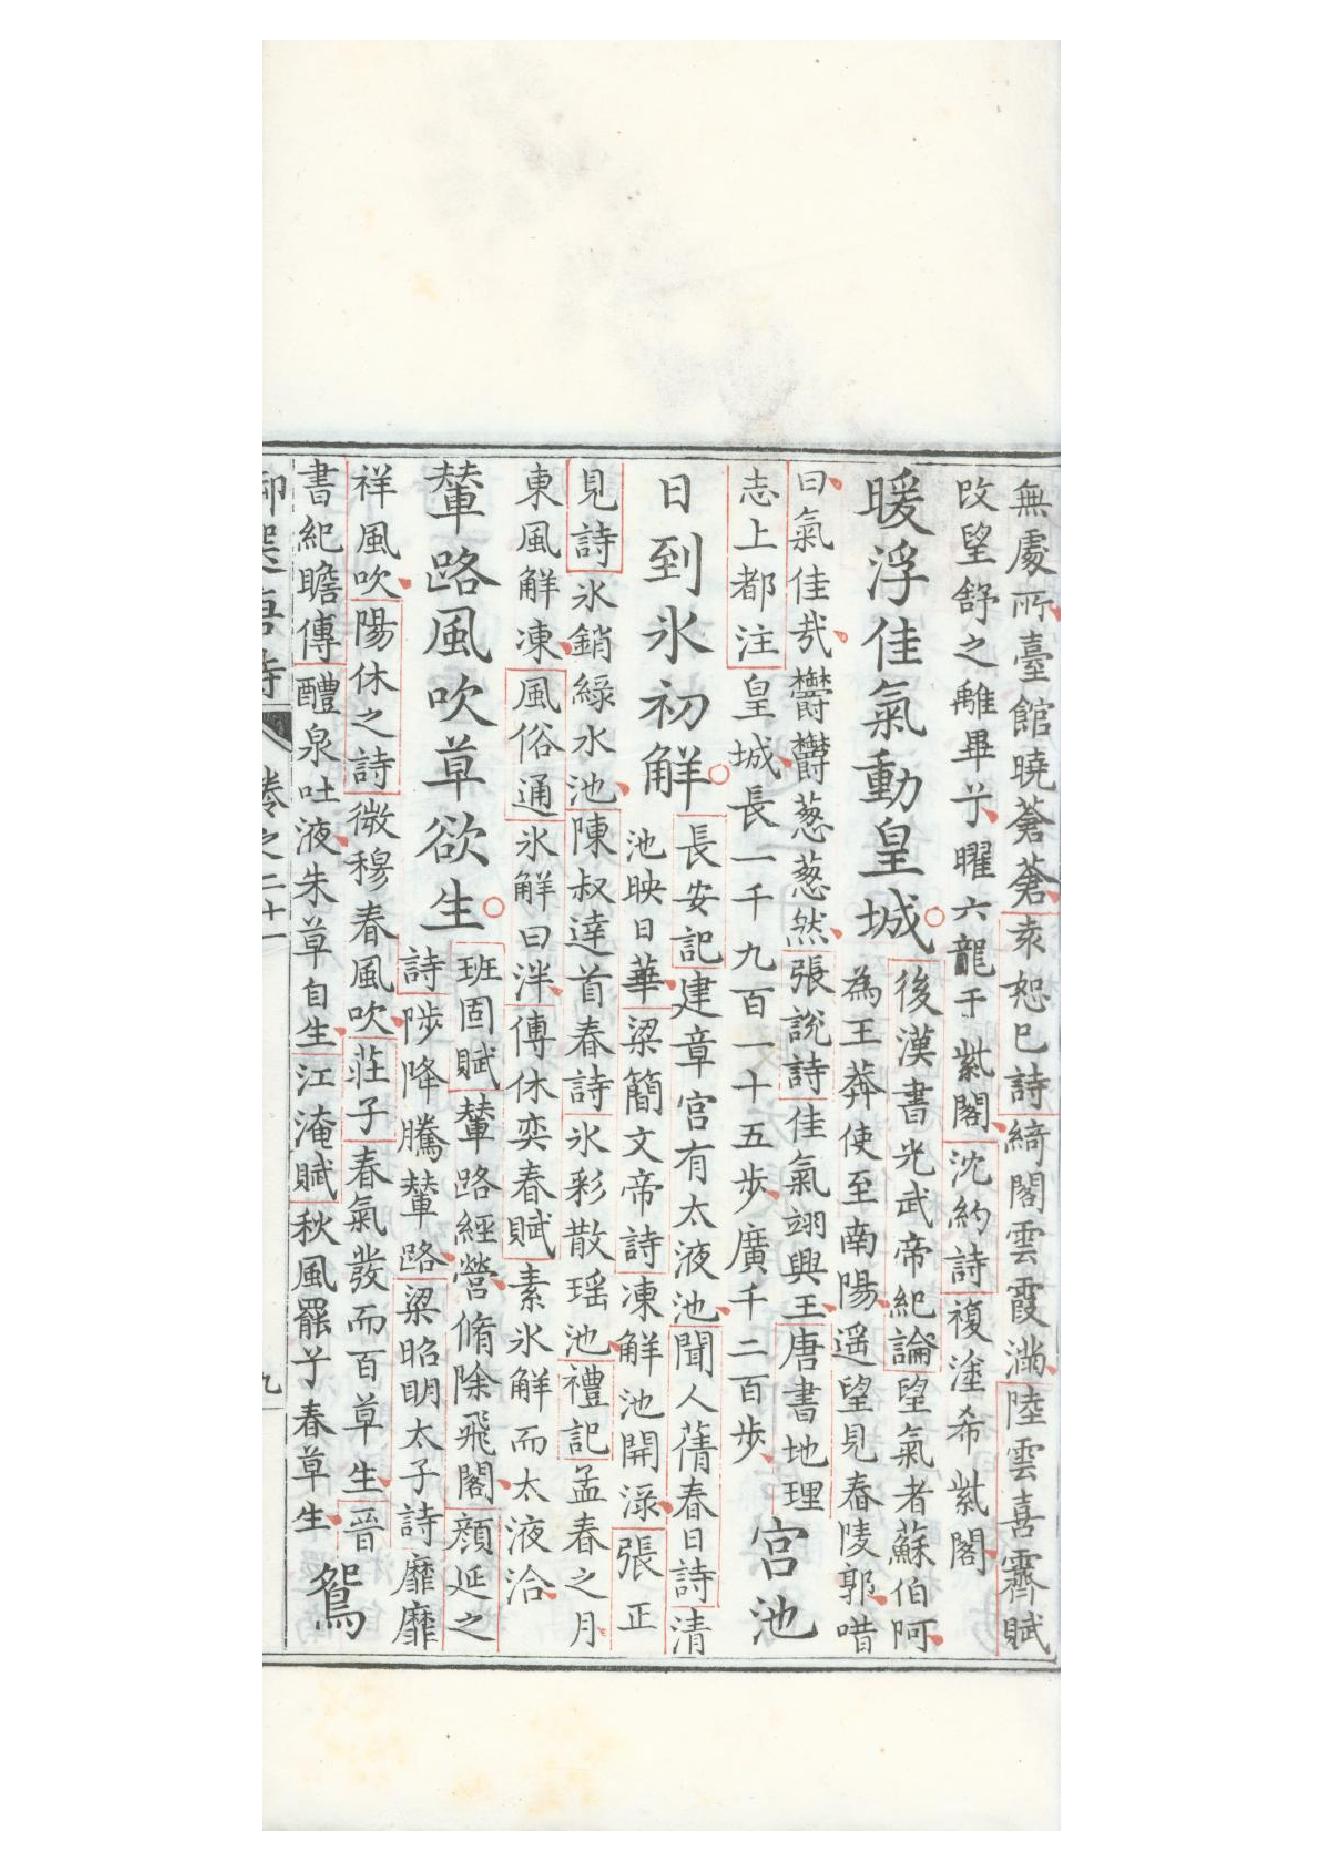 無處所臺館曉蒼蒼袁恕己詩綺閣雲霞滿陸雲喜霽賦
改望舒之離畢兮曜六龍于紫閣沈約詩複塗希紫閣
暖浮佳氣動皇城
後漢書光武帝紀論望氣者蘇伯阿
為王莽使至南陽遥望見舂陵郭唶
曰氣佳哉鬱鬱葱葱然張說詩佳氣翊興王唐書地理
志上都注皇城長一千九百一十五步廣千二百步
宮池
日到氷初解
長安記建章宮有太液池聞人蒨春日詩清
池映日華梁簡文帝詩凍解池開渌張正
見詩氷銷緑水池陳叔達首春詩氷彩散瑶池禮記孟春之月
東風解凍風俗通氷解曰泮傅休奕春賦素氷解而太液洽
輦路風吹草欲生
班固賦輦路經營脩除飛閣顔延之
詩陟降騰輦路梁昭明太子詩靡靡
祥風吹陽休之詩微穆春風吹莊子春氣發而百草生晉
書紀瞻傳醴泉吐液朱草自生江淹賦秋風罷兮春草生
鴛
御選唐詩 卷之二十一 九